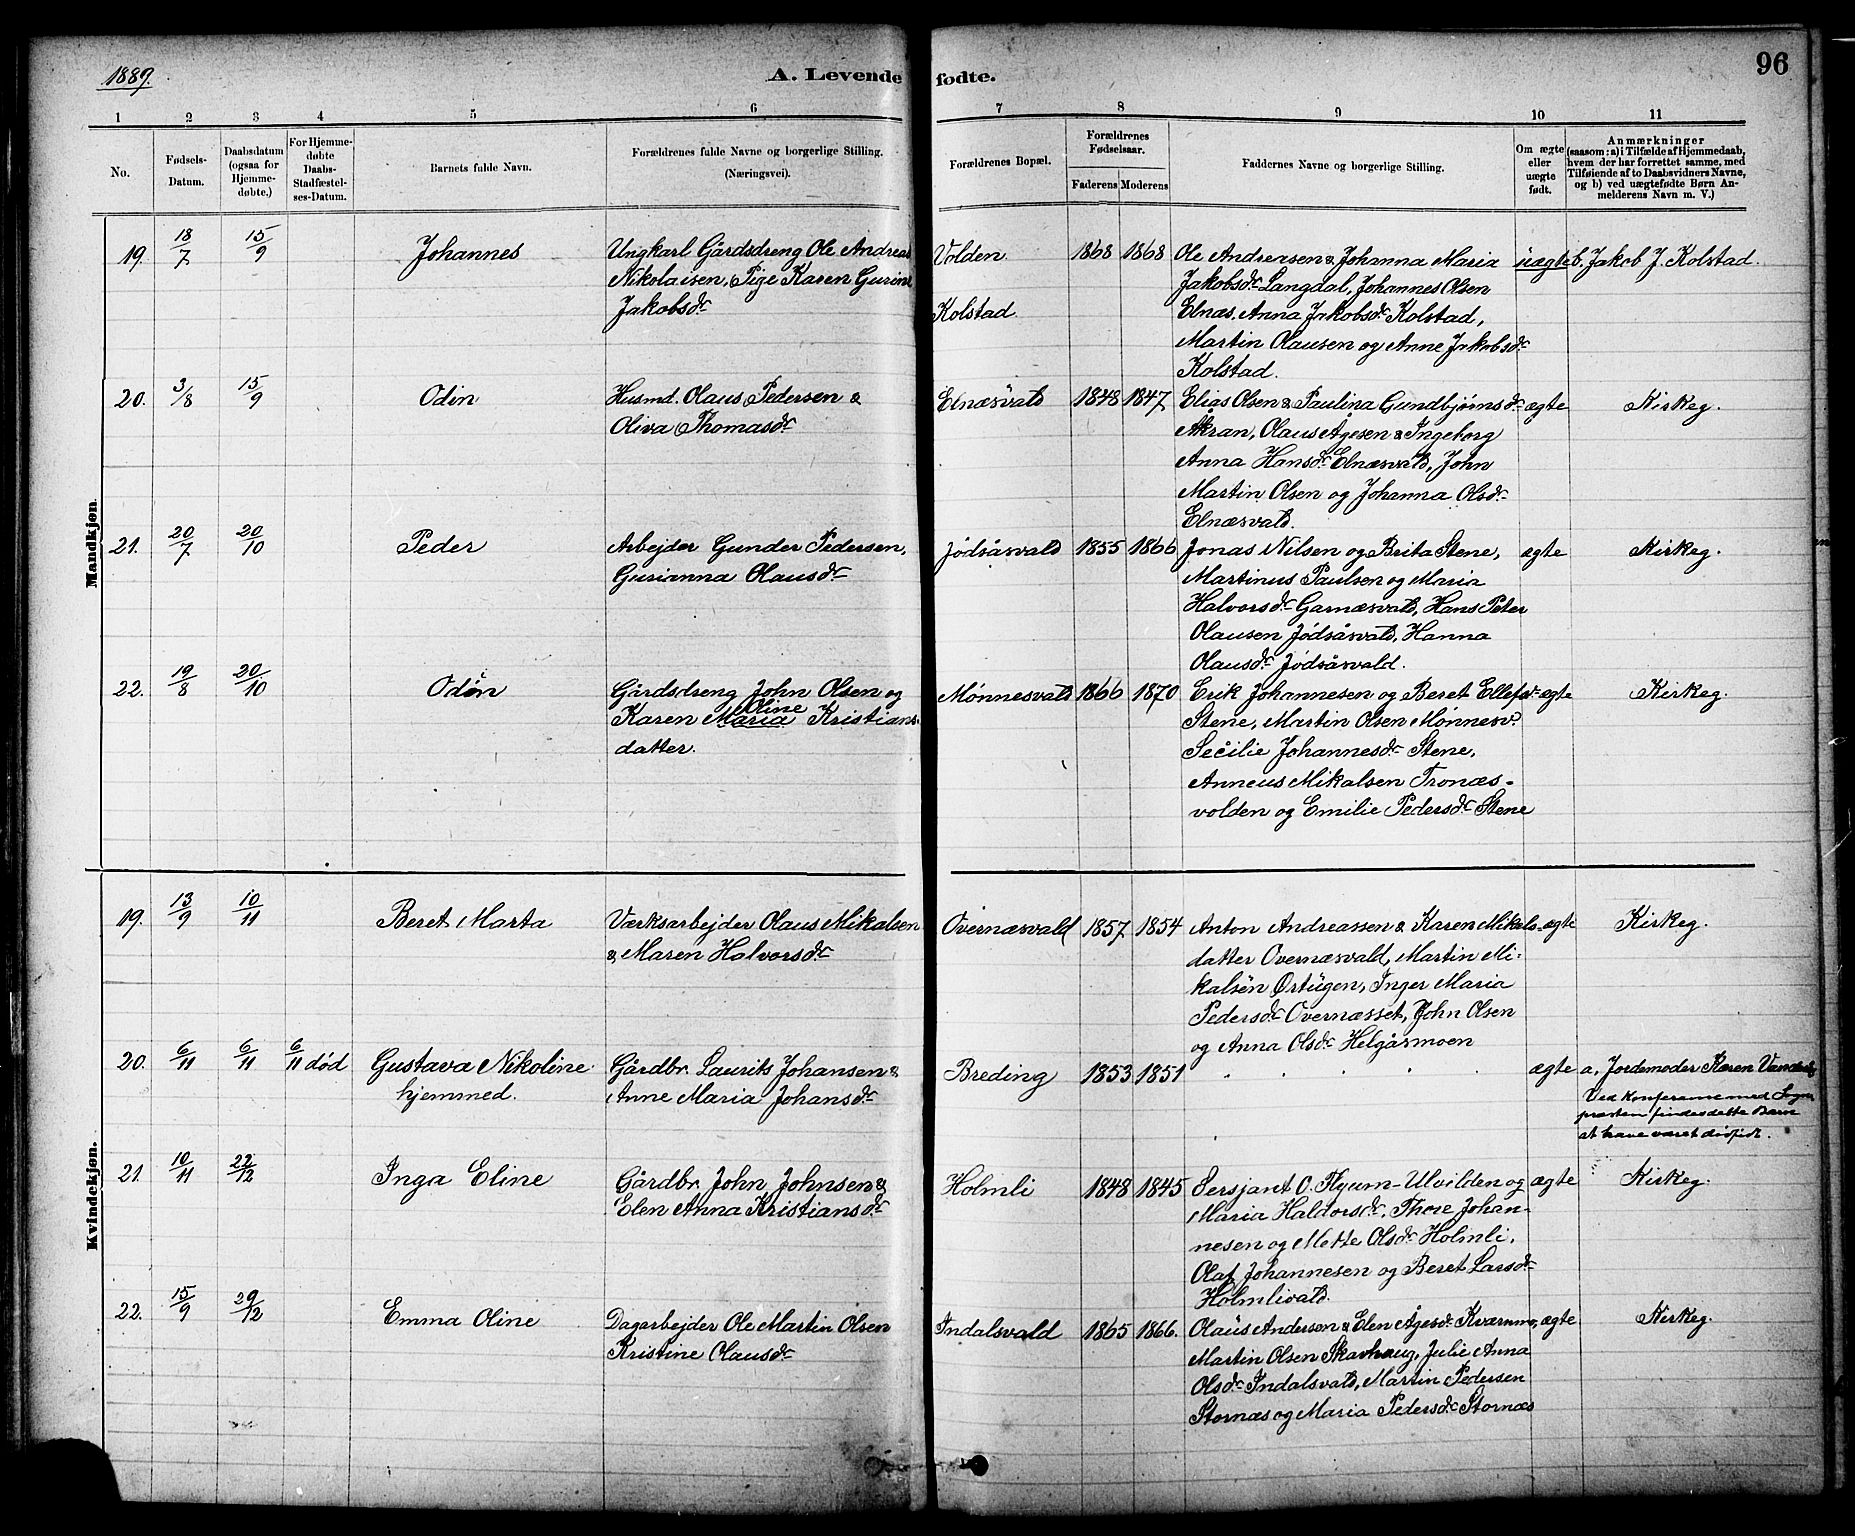 1889.
A. Levende fødte.
96
1 2 3 4 5 6 7 8 9 10 11
No.
Fødsels-
Datum.
Daabsdatum
(ogsaa for
Hjemme-
døbte.)
For Hjemme-
døbte
Daabs-
Stadfæstel-
ses-Datum.
Barnets fulde Navn.
Forældrenes fulde Navne og borgerlige Stilling.
(Næringsvei).
Forældrenes Bopæl.
Forældrenes
Fødselsaar.
Faderens Moderens
Faddernes Navne og borgerlige Stilling.
Om ægte
eller
uægte
født.
Anmærkninger
(saasom: a) i Tilfælde af Hjemmedaab,
hvem der har forrettet samme, med
Tilføiende af to Daabsvidners Navne,
og b) ved uægtefødte Børn An-
melderens Navn m. V.)
Mandkjøn.
19. 18/7 15/9 Johannes
Ungkarl Gårdsdreng Ole Andreas
Nikolaisen, Pige Karen Gurine
Jakobsdr
Volden
Kolstad
1868 1868
Ole Andreasen & Johanna Maria
Jakobsdr Langdal, Johannes Olsen
Elnæs, Anna Jakobsdr Kolstad,
Martin Olausen og Anne Jakobsdr
Kolstad.
uægte b. Jakob J. Kolstad.
20. 3/8 15/9 Odin
Husmd. Olaus Pedersen &
Oliva Thomasdr
Elnæsvald 1848 1847
Elias Olsen & Paulina Gundbjørnsdr
Åkran, Olaus Ågesen & Ingeborg
Anna Hansdr Elnæsvald, John
Martin Olsen og Johanna Olsdr
Elnæsvald.
ægte Kirkeg.
21. 20/7 20/10 Peder
Arbejder Gunder Pedersen,
Gurianna Olausdr
Jødsåsvald 1855 1866
Jonas Nilsen og Brita Stene,
Martinus Paulsen og Maria
Halvorsdr Garnæsvald, Hans Peter
Olausen Jødsåsvald, Hanna
Olausdr Jødsåsvald.
ægte Kirkeg.
22. 19/8 20/10 Odin
Gårdsdreng John Olsen og
Oline
Karen Maria Kristians-
datter.
Mønnesvald 1866 1870
Erik Johannesen og Beret Ellefsdr
Stene, Martin Olsen Mønnesv.
Secilie Johannesdr Stene,
Anneus Mikalsen Tronæs-
volden og Emilie Pedersdr Stene
ægte Kirkeg.
Kvindekjøn.
19. 13/9 10/11 Beret Marta
Værksarbejder Olaus Mikalsen
& Maren Halvorsdr
Overnæsvald 1857 1854
Anton Andreassen & Karen Mikals-
datter Overnæsvald, Martin Mi-
kalsen Ørtugen, Inger Maria
Pedersdr Overnæsset, John Olsen
og Anna Olsdr Helgåsmoen
ægte Kirkeg.
20. 6/11 6/11 6/11 død Gustava Nikoline
hjemmed.
Gårdbr. Laurits Johansen &
Anne Maria Johansdr
Breding 1853 1851 . . . . .
ægte a, Jordemoder Karen
Ved Konferance med Sogne
præsten findes dette Barn
at have været dødfødt.
21. 10/11 22/12 Inga Eline
Gårdbr. John Johnsen &
Elen Anna Kristiansdr
Holmli 1848 1845
Sersjant O. Flyum-Ulvilden og
Maria Haldorsdr, Thore Johan-
nesen og Mette Olsdr Holmli,
Olaf Johannesen og Beret Larsdr
Holmlivald.
ægte Kirkeg.
22. 15/9 29/12 Emma Oline
Dagarbejder Ole Martin Olsen
Kristine Olausdr
Indalsvald 1865 1866.
Olaüs Andersen & Elen Ågesdr Kværnmo,
Martin Olsen Skavhaug, Julie Anna
Olsdr Indalsvald, Martin Pedersen
Stornæs og Maria Pedersdr Stornæs
ægte Kirkeg.